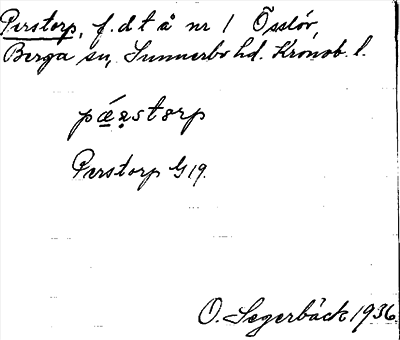 Perstorp, f. d t å nr 1 Össlöv,
Berga sn, Sunnerbo hd. Kronob. l.
pǽrstorp
Perstorp G 19.
O. Segerbäck 1936.